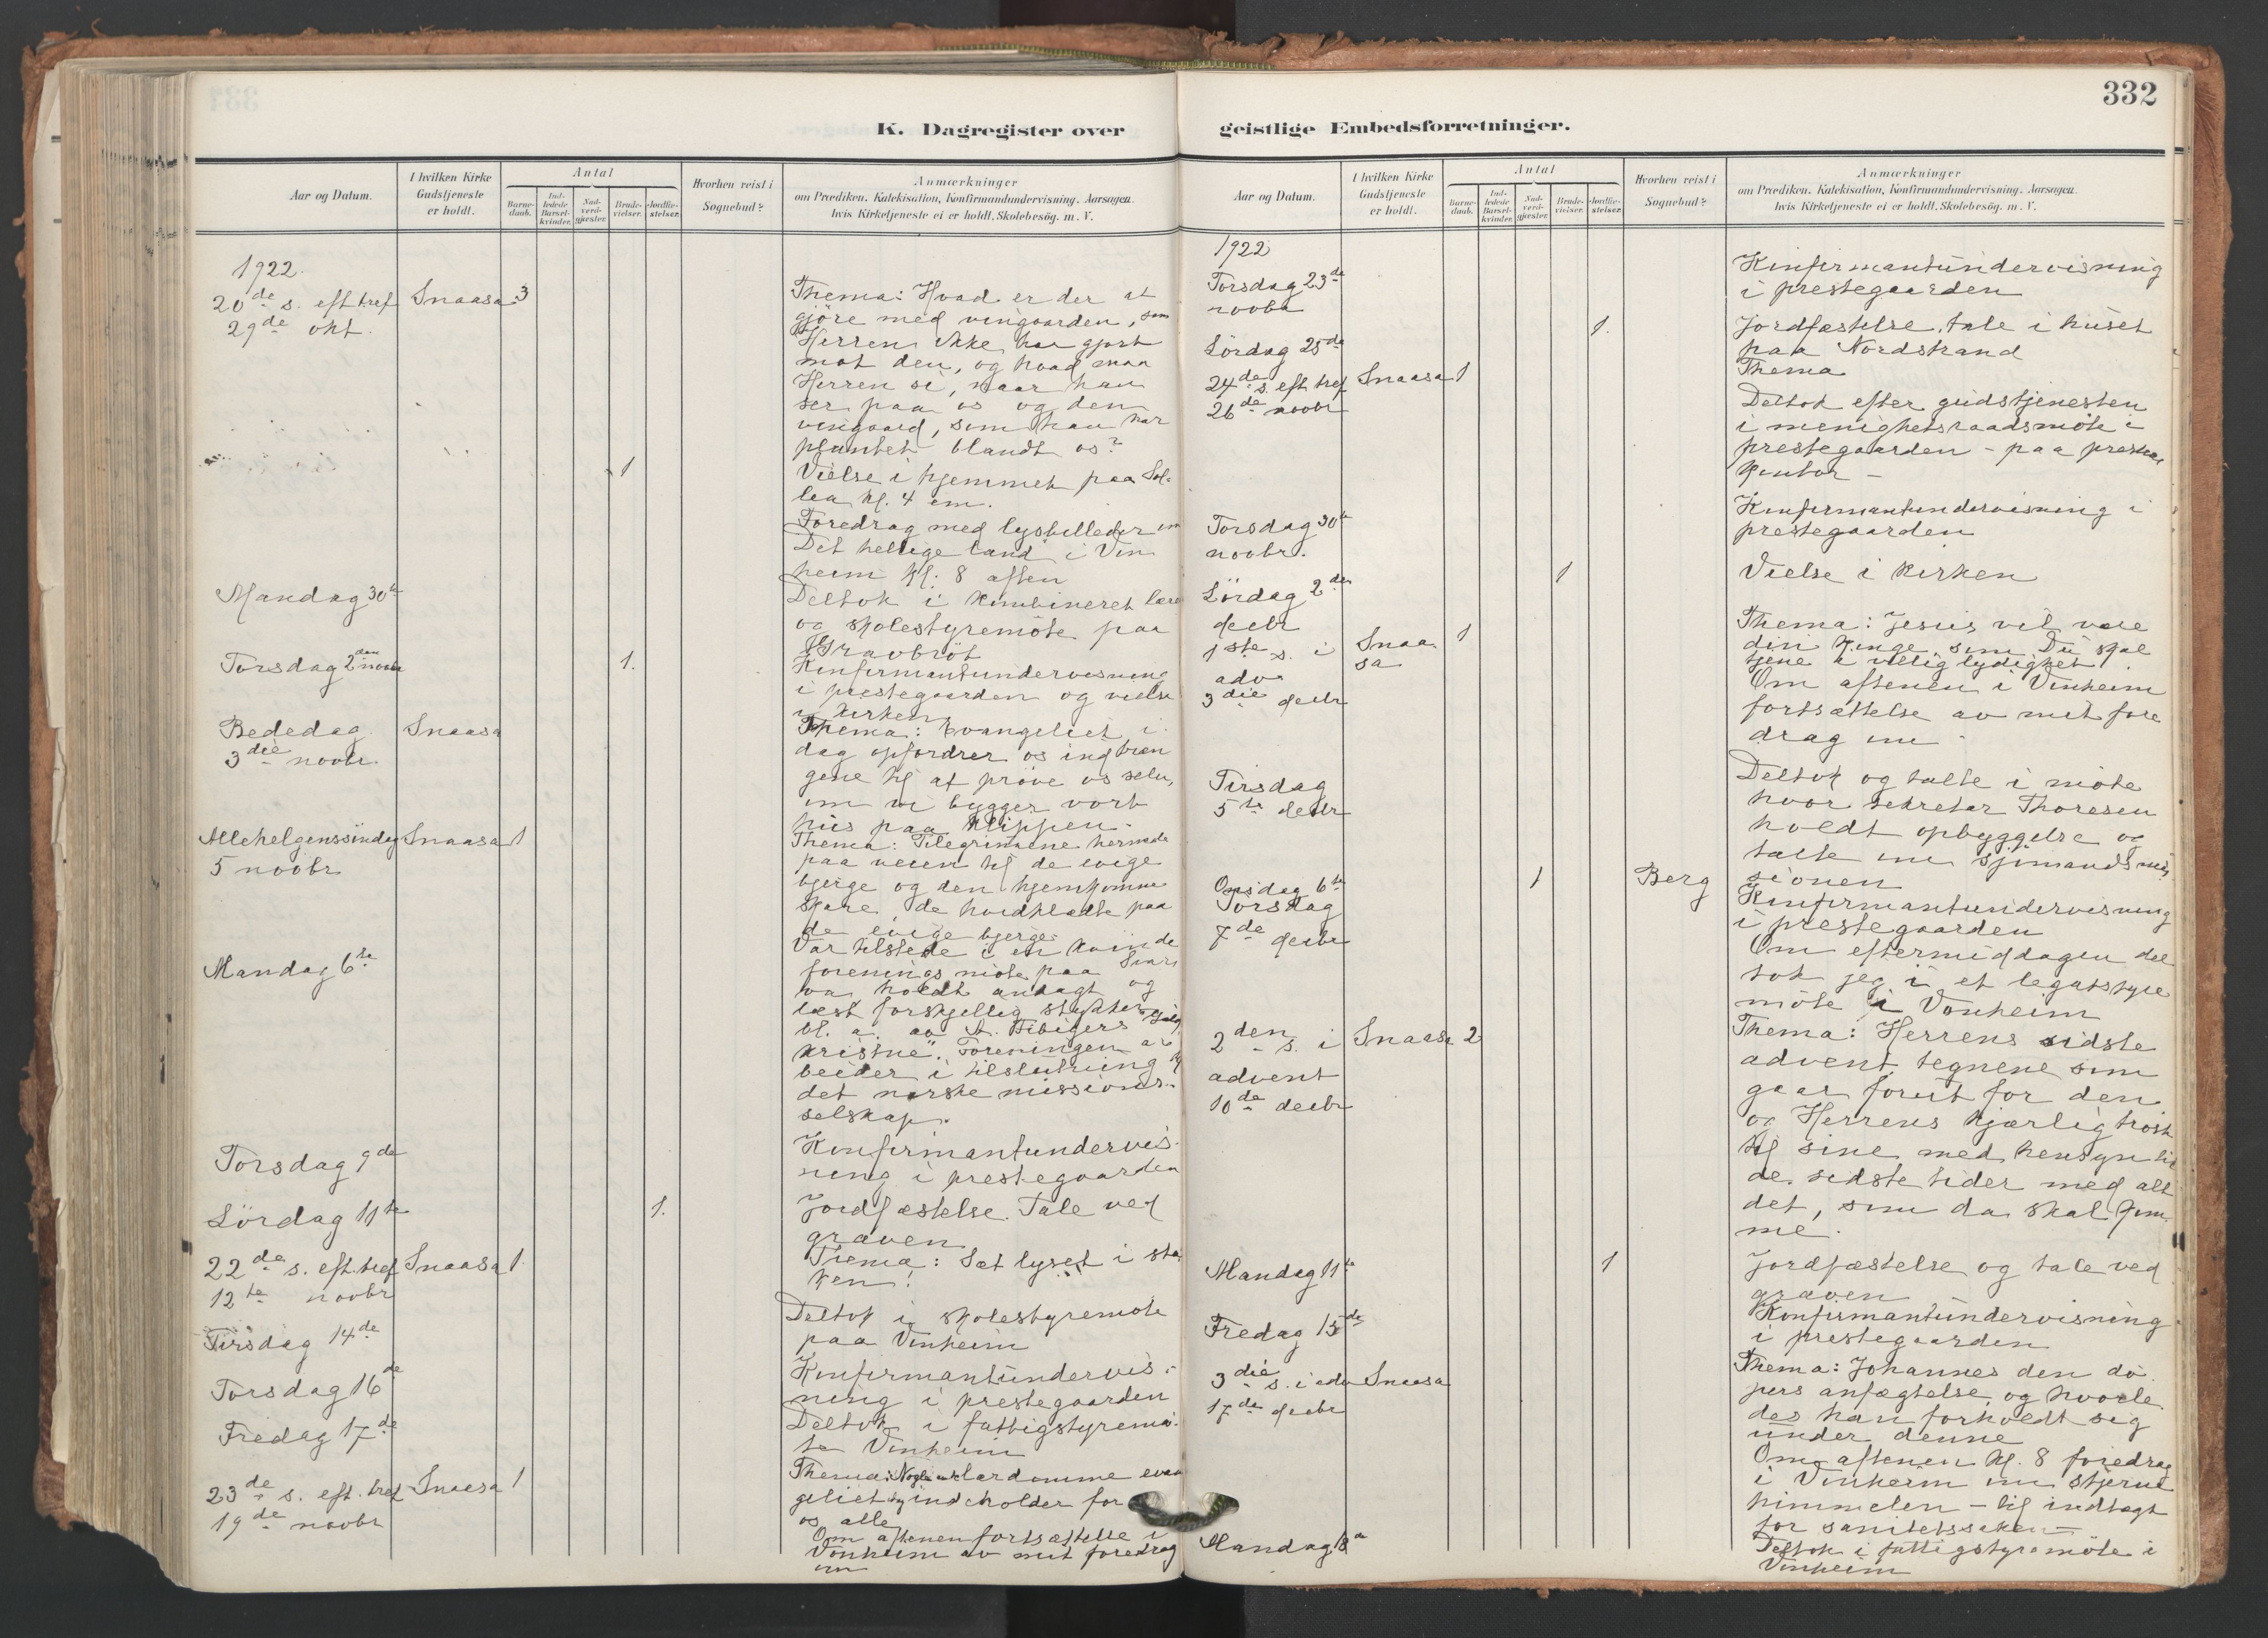 332
K. Dagregister over
geistlige Embedsforretninger.
Aar og Datum.
I hvilken Kirke
Gudstjeneste
er holdt.
Antal
Barne-
daab.
Ind-
ledede
Barsel-
kvinder.
Nad-
verd-
gjester.
Brude-
vielser.
Jordfæ-
stelser.
Hvorhen reist i
Sognebud?
Anmærkninger
om Prædiken, Katekisation, Konfirmandundervisning, Aarsagen,
hvis Kirketjeneste ei er holdt, Skolebesög, m. V.
1922.
20de s. eft tref Snaasa 3
29de okt.
Thema: Hvad er der at
gjöre med vingaarden, som
Herren ikke har gjort
mot den, og hvad maa
Herren si, naar han
ser paa os og den
vingaard, som han har
plantet blandt os?
1
Vielse i hjemmet paa Sol-
lea kl. 4 em.
Foredrag med lysbilleder om
Det hellige land i Vin
heim kl. 8 aften
Mandag 30te
Deltok i kombineret
og skolestyremöte paa
Torsdag 2den novbr 1.
Konfirmantundervisning
i prestegaarden og vielse
i kirken
Bededag Snaasa
3die novbr.
Thema: Evangeliet i
dag opfordrer os ind træn
gene til at pröve os selv,
om vi bygger vort
hus paa klippen.
Allehelgenssöndag Snaasa 1
5 novbr
Thema: Pilegrimene hernede
paa veien til de evige
bjerge og den hjemkomne
skare, de hvidklædte paa
de evige bjerge.
Mandag 6te
Var tilstede i en kvinde
forenings möte paa
va holdt andagt og
læst forskjellig stykker
bl. a. av A. Fibigers
kristne". Foreningen ar
beider i tilslutning til
det norske missions-
selskap.
Torsdag 9de
Konfirmantundervis-
ning i prestegaarden
Lördag 11te 1.
Jordfæstelse. Tale ved
graven
22de s. eft. tref Snaasa 1.
12te novbr
Thema: Sæt lyset i sta
ken!
Tirsdag 14de
Deltok i skolestyremöte
paa Vinheim
Torsdag 16de
Konfirmantundervis-
ning i prestegaarden
Fredag 17de
Deltok i fattigstyremö-
te Vinheim
23de s. eft. tref Snaasa 1
19de novbr
Thema: Nogle av lærdomme evan
geliet indeholder for
os alle
Om aftenen fortsættelse i
Vonheim av mit foredrag
om
Aar og Datum.
I hvilken Kirke
Gudstjeneste
er holdt.
Antal
Barne-
daab.
Ind-
ledede
Barsel-
kvinder.
Nad-
verd-
gjester.
Brude-
vielser.
Jordfæ-
stelser.
Hvorhen reist i
Sognebud?
Anmærkninger
om Prædiken, Katekisation, Konfirmandundervisning, Aarsagen,
hvis Kirketjeneste ei er holdt, Skolebesög, m. V.
1922
Torsdag 23de
novbr
Konfirmantundervisning
i prestegaarden
Lördag 25de 1.
Jordfæstelse, tale i huset
paa Nordstrand
24de s. eft tref Snaasa 1
26de novbr
Thema
Deltok efter gudstjenesten
i menighetsraadsmöte i
prestegaarden - paa prestens
kontor -
Torsdag 30te
novbr.
Konfirmantundervisning i
prestegaarden
Lördag 2den
decbr 1
Vielse i kirken
1ste s. i Snaa 1
adv. sa
3die decbr
Thema: Jesus vil være
din konge, som Du skal
tjene i villig lydighet!
Om aftenen i Vinheim
fortsættelse av mit fore
drag om
Tirsdag
5te decbr
Deltok og talte i möte
hvor sekretær Thoresen
holdt opbyggelse og
talte om sjömandsmis
sionen
Onsdag 6te 1 Berg
Torsdag
7de decbr
Konfirmantundervisning
i prestegaarden
Om eftermiddagen del
tok jeg i et legatstyre
möte i Vonheim
2den s. i Snaasa 2
advent
10de decbr
Thema: Herrens sidste
advent, tegnene som
gaar forut for den
og Herrens kjærlig trøst
til sine med hensyn til
de sidste tider med alt
det, som da skal kom-
me.
Mandag 11te 1
Jordfæstelse og tale ved
graven
Fredag 15de
Konfirmantundervisning
i prestegaarden
3die s. i adv Snaasa
17de decbr
Thema: Johannes den dö
pers anfægtelse og hvorle
des han forholdt sig
under denne
Om aftenen kl. 8 foredrag
i Vinheim om stjerne
himmelen - til indtægt
for sanitetssaken
Mandag 18de
Deltok i fattigstyremöte i
Vinheim